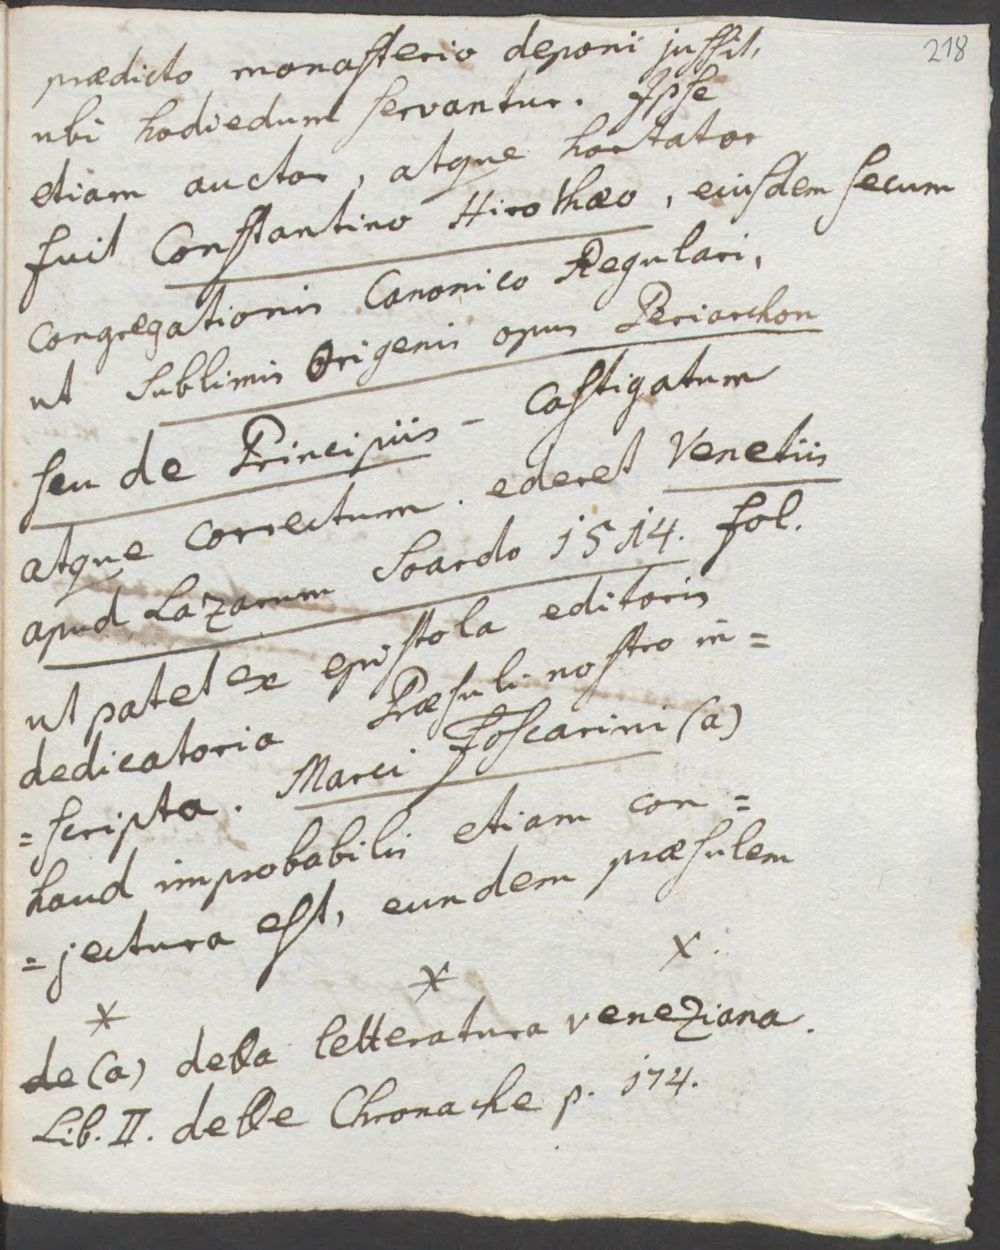 218
prædicto monasterio deponi jussit,
ubi hodiedum servantur. Ipse
etiam auctor, atque hortator
fuit Constantino Hirothæo, eiusdem secum
congregationis Canonico Regulari,
ut sublimis Origenis opus Periarchon
seu de Principiis - castigatum
atque correctum. ederet Venetiis
apud Lazarum Soardo 1514. fol.
ut patet ex epistola editoris
dedicatoria Præsuli nostro in=
=scripta. Marci Foscarini (a)
haud improbabilis etiam con=
=jectura est, eundem præsulem
* * x
de (a) della letteratura veneziana.
Lib. II. delle Chronache p. 174.